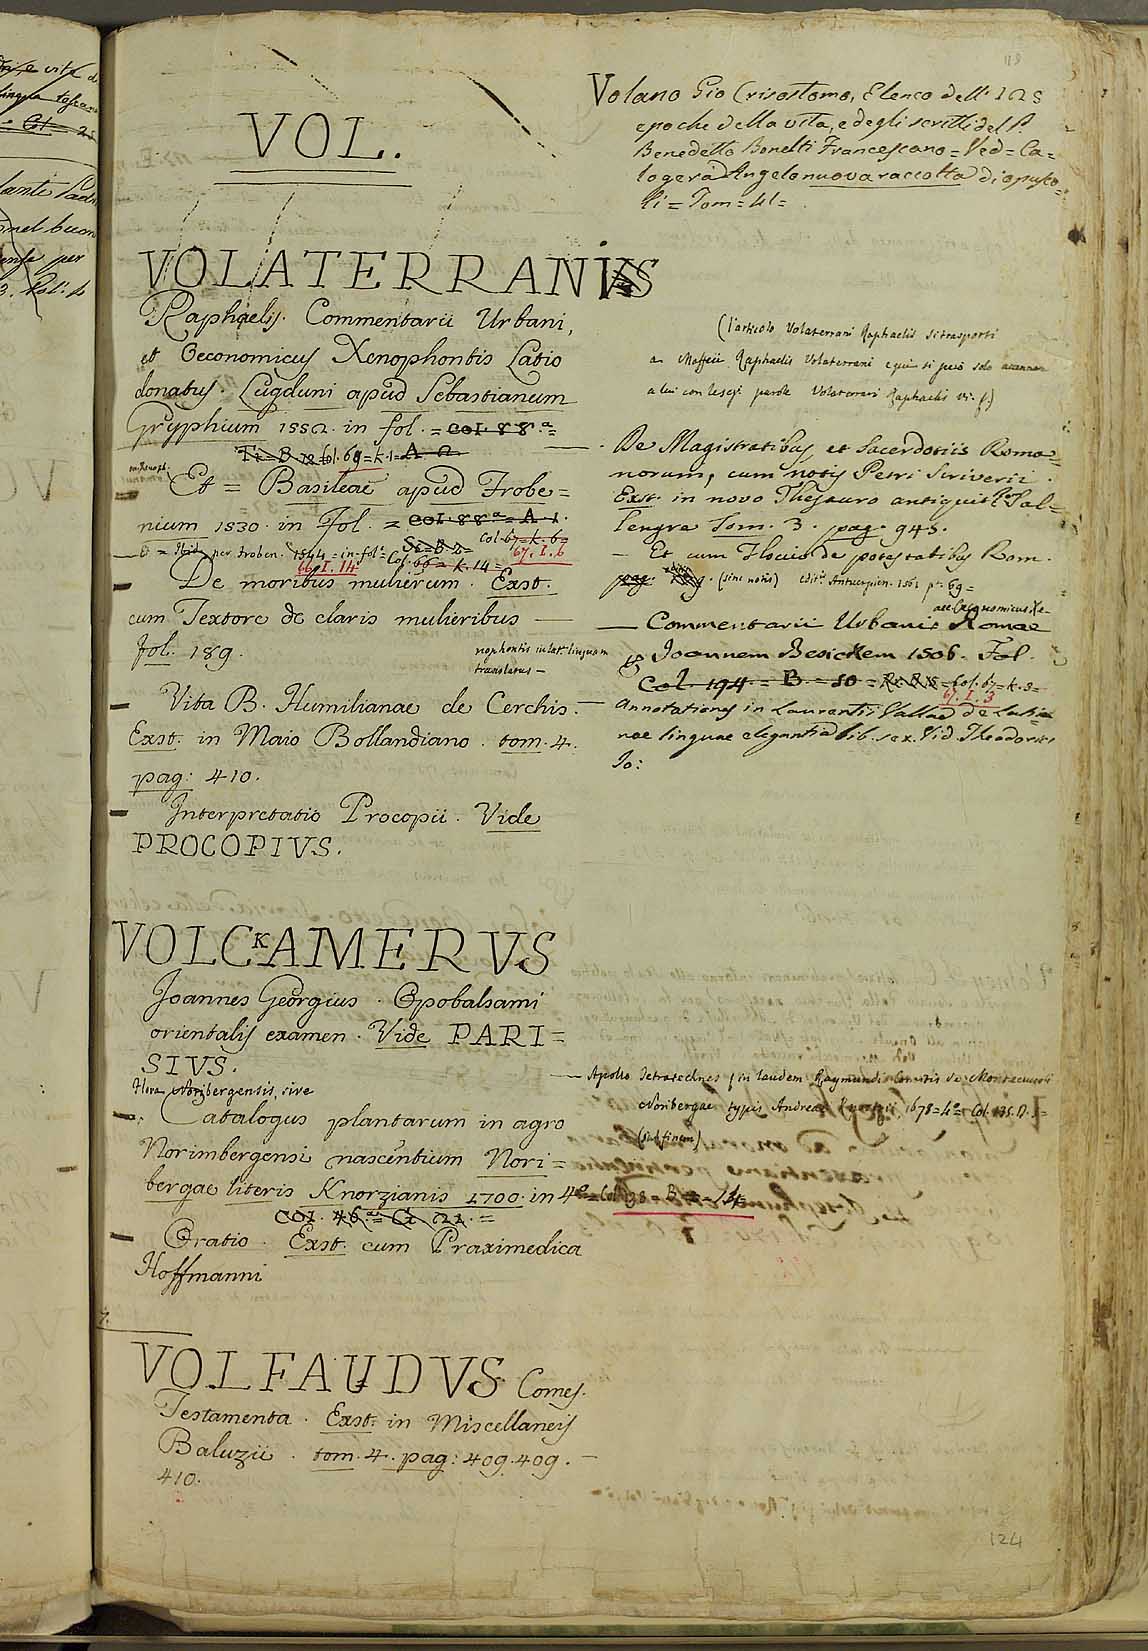 118
VOL.
VOLATERRANVS
Raphaelis. Commentarii Urbani,
et Oeconomicus Xenophontis Latio
donatus. Lugduni apud Sebastianum
Gryphium 1552. in fol. = col. 88.a =
Col. 69 = K. 1 = A
Et = Basileae apud Frobe=
nium 1530. in Fol. = col. 88.a = A. 1.
Col. 67 = K. 6 =
67. I. 6
= Ibid. per Froben. 1544 = in fol. = Col. 66 = K. 14 =
66. I. 14
De moribus mulierum. Exst.
cum Textore de claris mulieribus —
fol. 189.
Vita B. Humilianae de Cerchis.
Exst. in Maio Bollandiano. tom. 4.
pag: 410.
Interpretatio Procopii. Vide
PROCOPIVS.
VOLCKAMERVS
Joannes Georgius. Opobalsami
orientalis examen. Vide PARI=
SIVS.
Flora Noribergensis, sive
Catalogus plantarum in agro
Norimbergensi nascentium Nori=
bergae literis Knorzianis 1700. in 4.o =
col. 46.a = G. 21. =
Oratio. Exst. cum Praximedica
Hoffmanni
VOLFAUDVS Comes.
Testamenta. Exst. in Miscellaneis
Baluzii. tom. 4. pag: 409. 409.
410.
Volano Gio Crisostomo, Elenco dell' 125
epoche della vita, e degli scritti del P.
Benedetto Bonelli Francescano = Ved = Ca=
logerà Angelo nuova raccolta di opusco=
li = Tom = 41 =
(l'articolo Volaterrani Raphaelis si trasporti
a Maffeii Raphaelis Volaterrani e qui si però solo accenna
a lui con le seg.i parole Volaterrani Raphaelis
De Magistratibus, et Sacerdotiis Roma=
norum, cum notis Petri Scriverii.
Exst. in novo Thesauro antiquit. Sal=
lengra Tom. 3. pag: 945.
— Et cum Flocco de potestatibus Rom.
pag: (sine notis) edit. Antuerpien. 1561 p.a 69 =
— Commentarii Urbani Romae
ac Oeconomicus Xe=
nophontis in lat. linguam
translatus —
Joannem Besickem 1506. Fol.
Col. 194 = B. 10 = Col. 67 = K. 3 =
67. I. 3
Annotationes in Laurentii Vallae de Lati=
nae linguae elegantia lib. sex. Vid. Theodoricus
Jo:
— Apollo Tetratechnes (in laudem Raymundi Comitis de Montecuccoli
Noribergae typis Andreae Knortzii, 1678 = 4.o = Col. 135. D.
(sub finem)
124